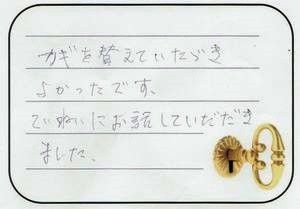 カギを替えていただき
よかったです。
ていねいにお話していただき
ました。